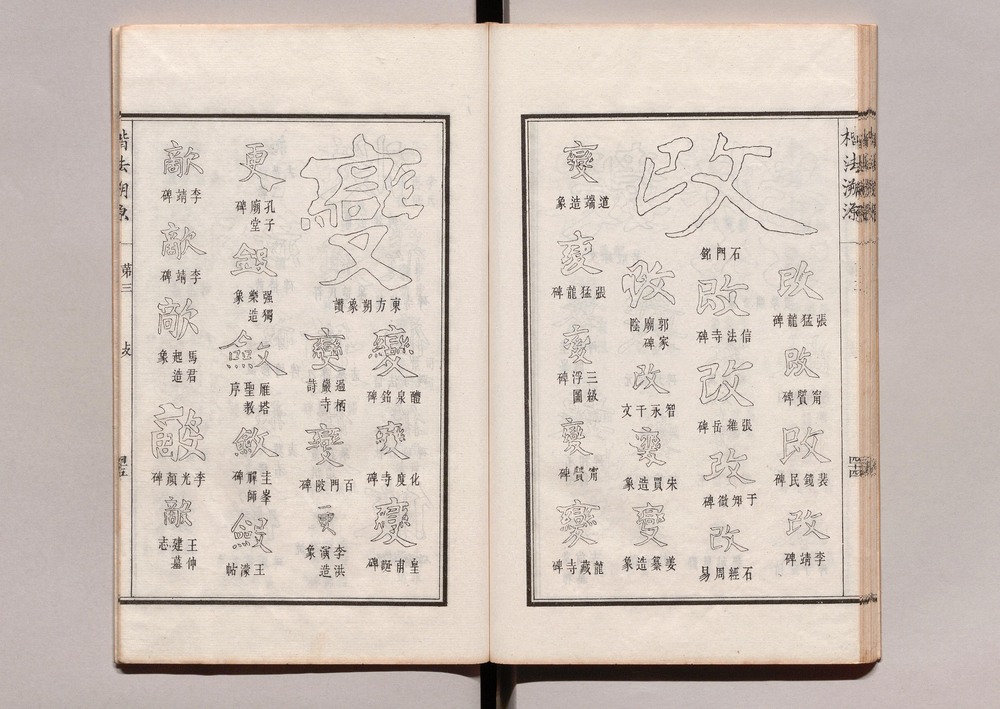 楷法溯源
改
石門銘
改
張猛龍碑
改
甯贙碑
改
裴鏡民碑
改
李靖碑
改
信法寺碑
改
張維岳碑
改
于知微碑
改
石經周易
改
郭家廟碑陰
改
智永千文
變
宋買造象
變
姜纂造象
變
道端造象
變
張猛龍碑
變
三級浮圖碑
變
甯贙碑
變
龍藏寺碑
四十四
變
東方朔象讚
變
醴泉銘碑
變
化度寺碑
變
皇甫誕碑
變
過栖巖寺詩
變
百門陂碑
更
李洪演造象
更
孔子廟堂碑
強獨樂造象
斂
雁塔聖教序
斂
圭峯禪師碑
斂
王濛帖
敵
李靖碑
敵
李靖碑
敵
馬君起造象
敵
李光顏碑
敵
王仲建墓志
楷法溯源
第三
攴
四十五